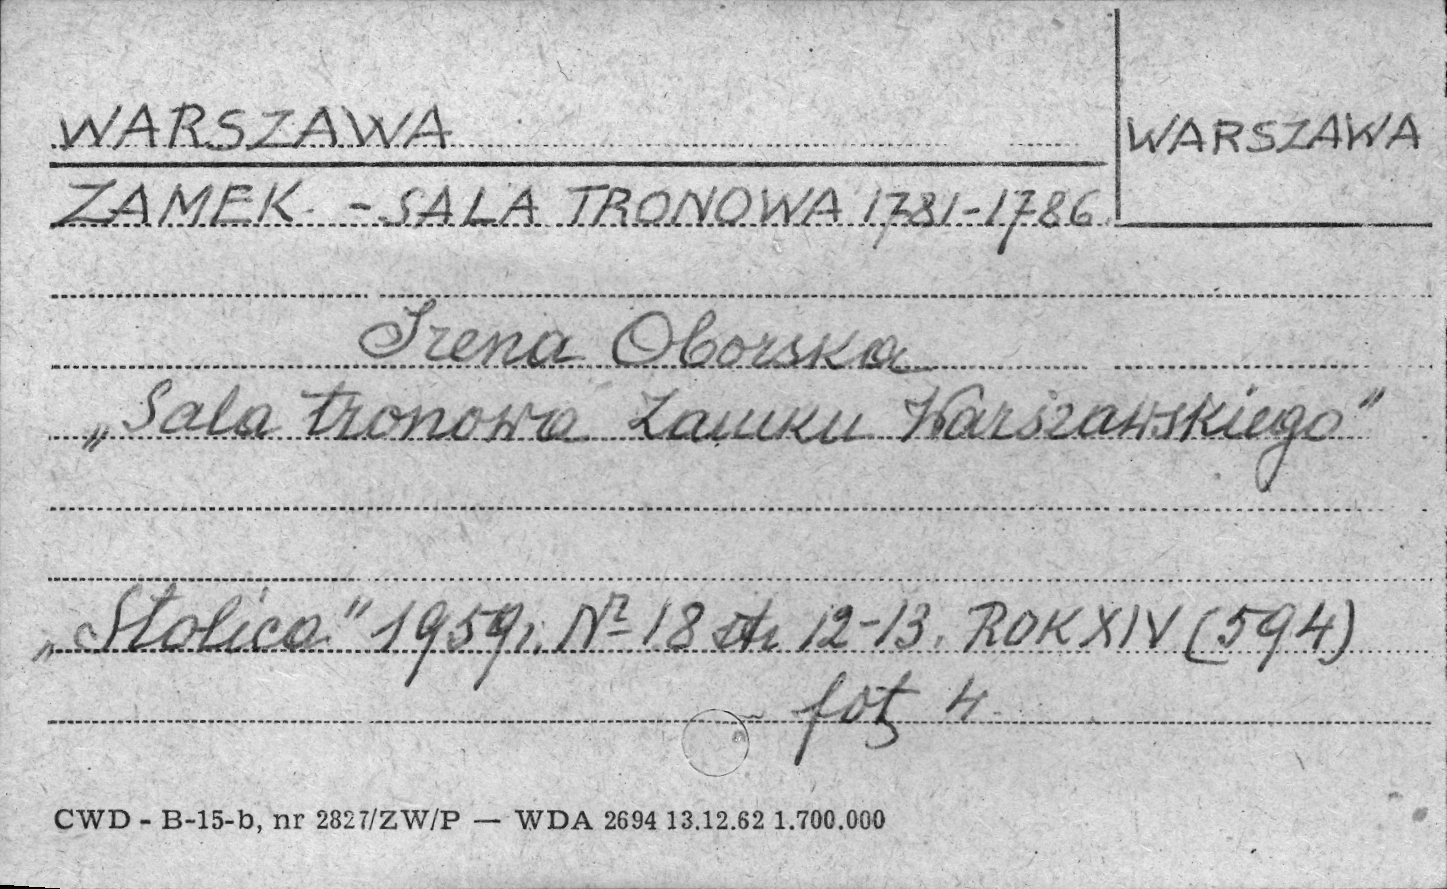 WARSZAWA
WARSZAWA
ZAMEK - SALA TRONOWA 1781-1786
Irena Oborska
„Sala tronowa Zamku Warszawskiego”
„Stolica” 1959r. Nr 18 str 12-13. ROK XIV (594)
fot. 4
CWD - B-15-b, nr 2827/ZW/P — WDA 2694 13.12.62 1.700.000